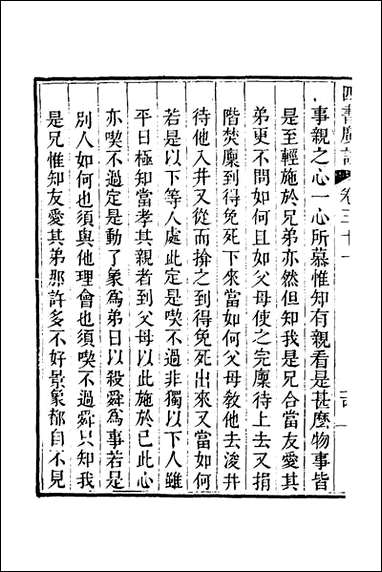 四書廣註 卷三十一
事親之心一心所慕惟知有親看是甚麽物事皆
是至輕施於兄弟亦然但知我是兄合當友愛其
弟更不問如何且如父母使之完廩待上去又捐
階焚廩到得免死下來當如何父母教他去浚井
待他入井又從而揜之到得免死出來又當如何
若是以下等人處此定是喫不過非獨以下人雖
平日極知當孝其親者到父母以此施於已此心
亦喫不過定是動了象為弟日以殺舜為事若是
別人如何也須與他理會也須喫不過舜只知我
是兄惟知友愛其弟那許多不好景象都自不見